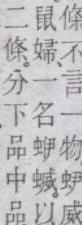 條不言一物蛜威
鼠婦。一名蛜蝛以
二條。分下品中品